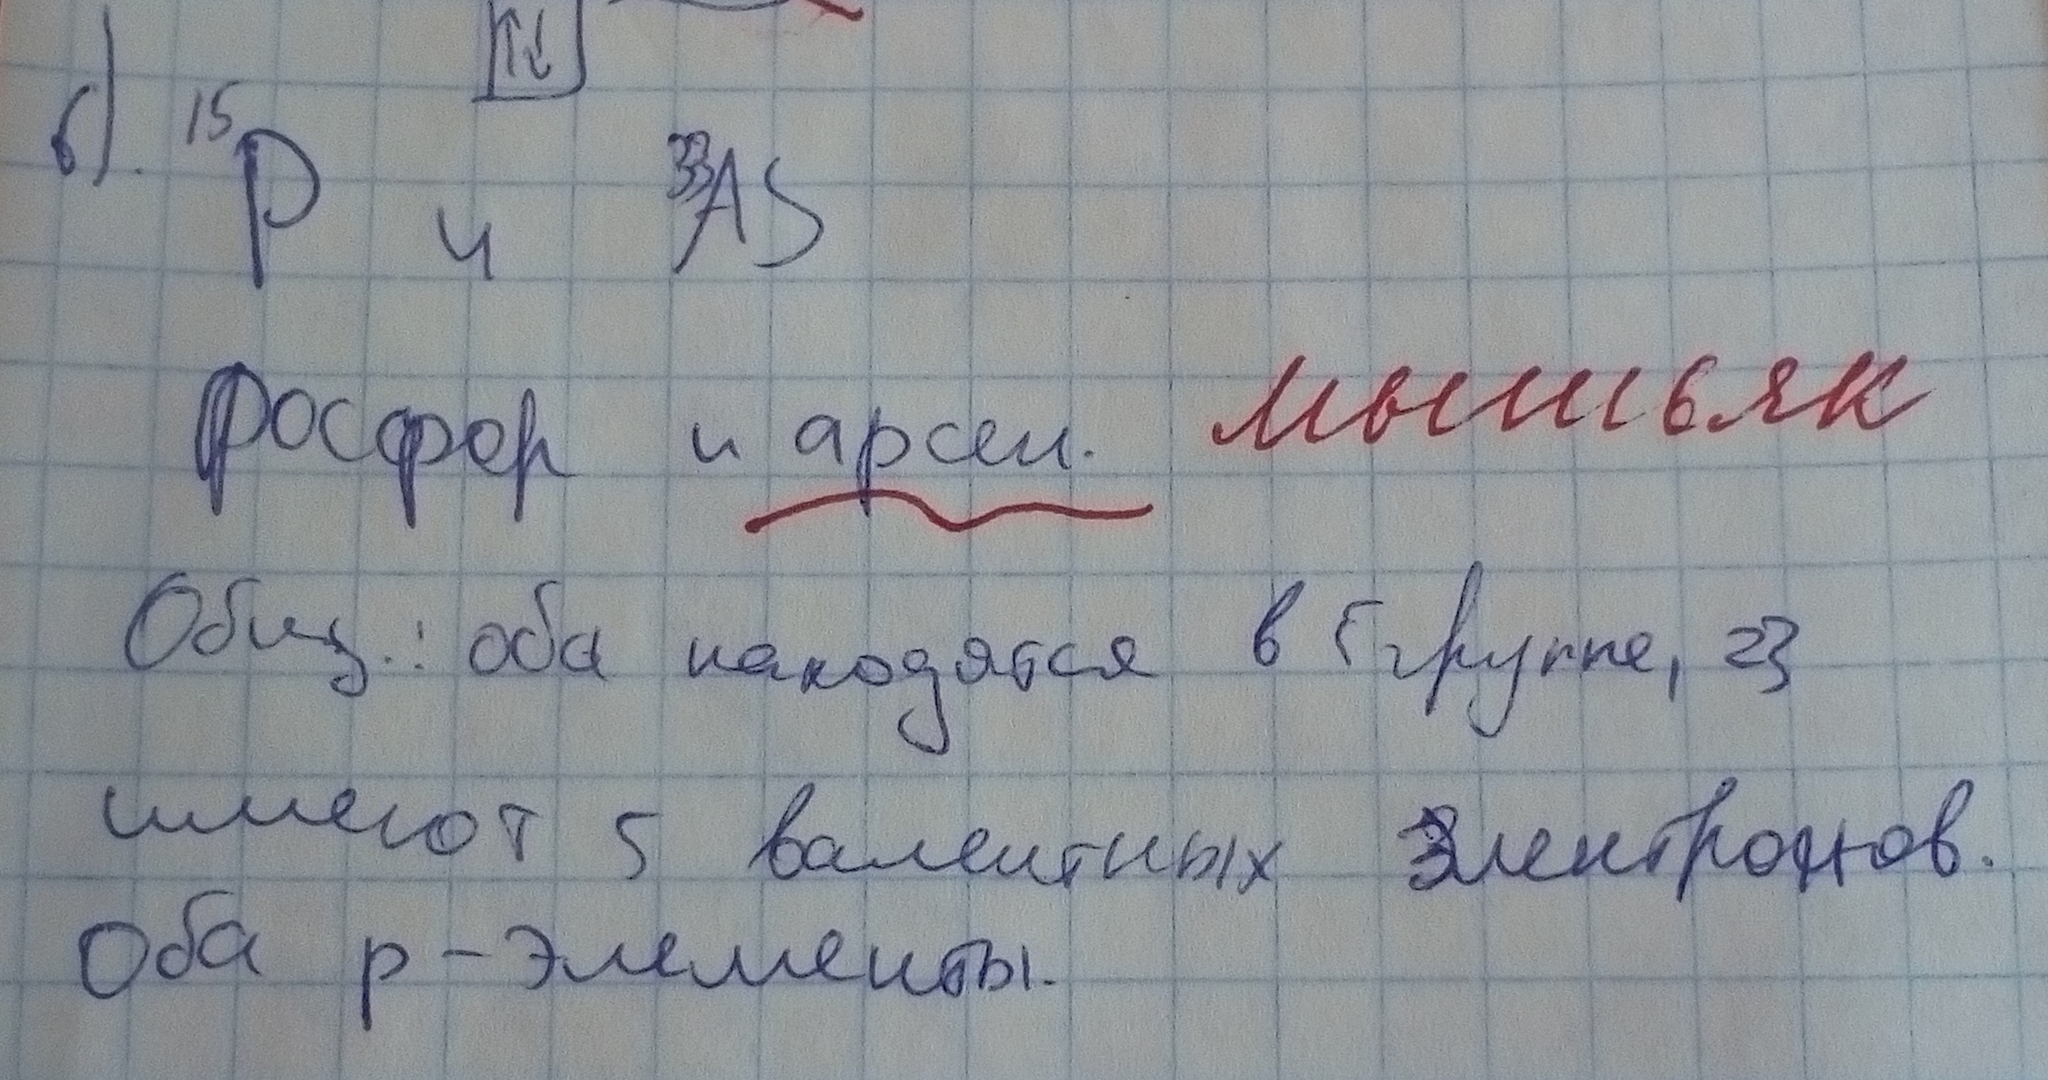 ↑↓
б). ¹⁵P и ³³As
фосфор и арсен. мышьяк
Общ.: оба находятся в 5 группе,
имеют 5 валентных электронов.
Оба р-элементы.